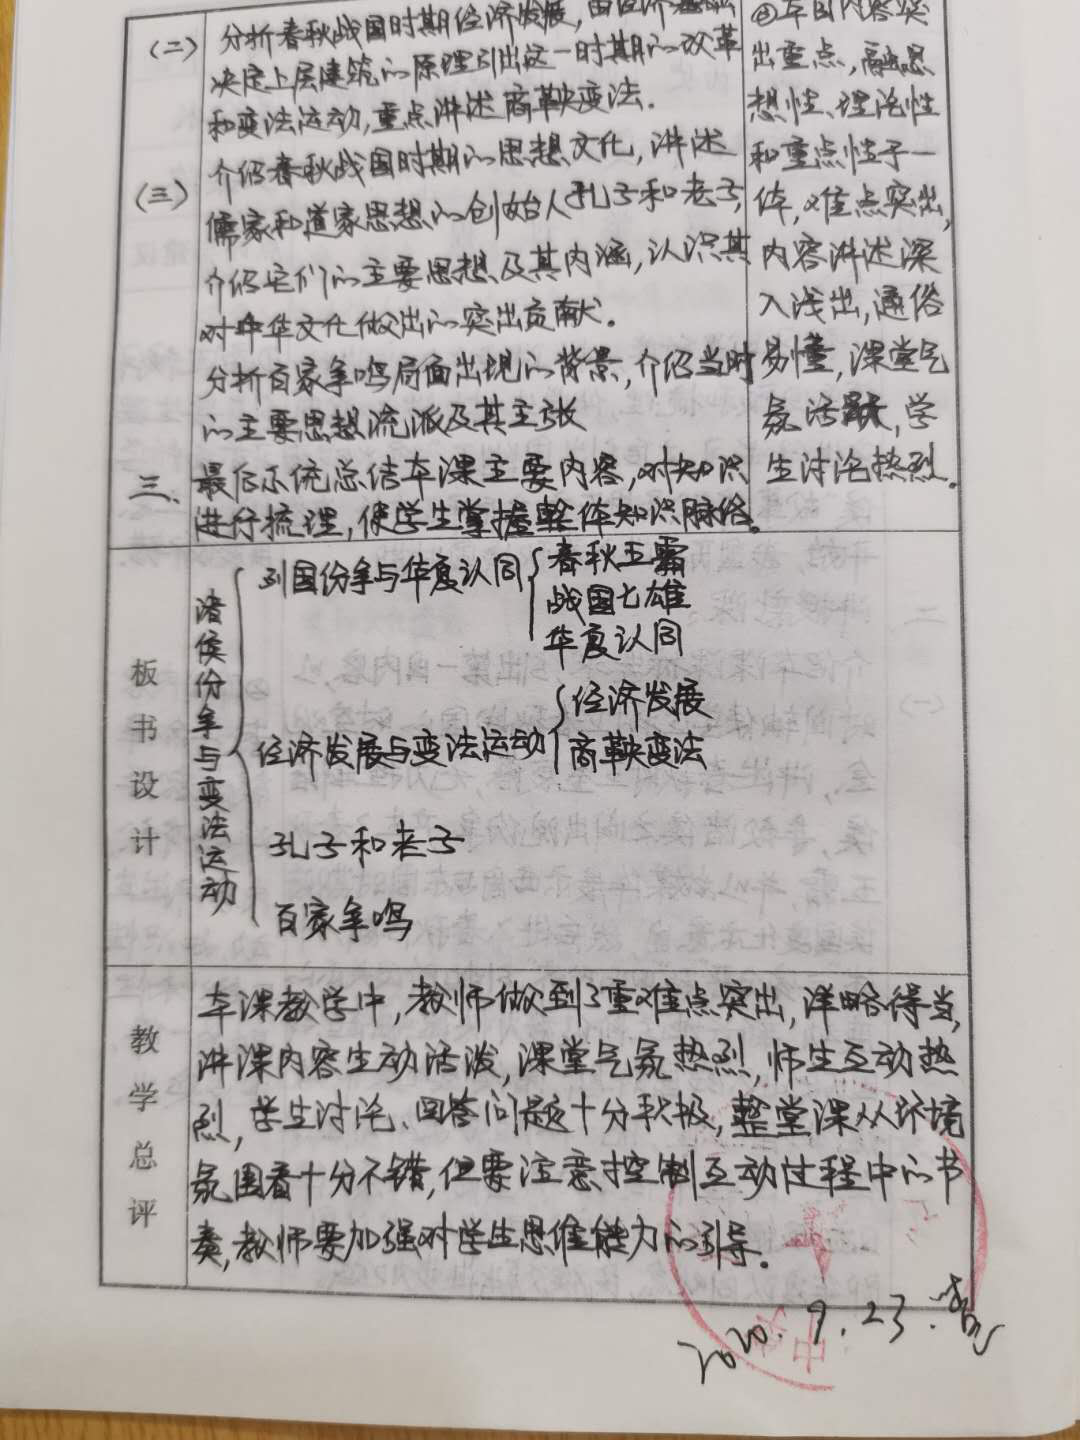 (二) 分析春秋战国时期经济发展，由经济基础
决定上层建筑的原理引出这一时期的改革
和变法运动，重点讲述商鞅变法.
(三) 介绍春秋战国时期的思想文化，讲述
儒家和道家思想的创始人孔子和老子，
介绍它们的主要思想及其内涵，认识其
对中华文化做出的突出贡献.
分析百家争鸣局面出现的背景，介绍当时
的主要思想流派及其主张
三、最后系统总结本课主要内容，对知识
进行梳理，使学生掌握整体知识脉络。
④本目内容突
出重点，融思
想性、理论性
和重点性于一
体，难点突出，
内容讲述深
入浅出，通俗
易懂，课堂气
氛活跃，学
生讨论热烈.
板书设计
诸侯纷争与变法运动
列国纷争与华夏认同
春秋五霸
战国七雄
华夏认同
经济发展与变法运动
经济发展
商鞅变法
孔子和老子
百家争鸣
教学总评
本课教学中，教师做到了重难点突出，详略得当，
讲课内容生动活泼，课堂气氛热烈，师生互动热
烈，学生讨论、回答问题十分积极，整堂课从环境
氛围看十分不错，但要注意控制互动过程中的节
奏，教师要加强对学生思维能力的引导。
2020.9.23.